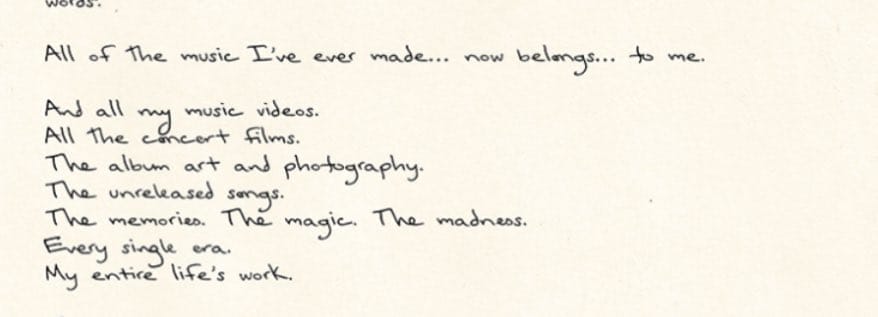 words.
All of the music I've ever made... now belongs... to me.
And all my music videos.
All the concert films.
The album art and photography.
The unreleased songs.
The memories. The magic. The madness.
Every single era.
My entire life's work.